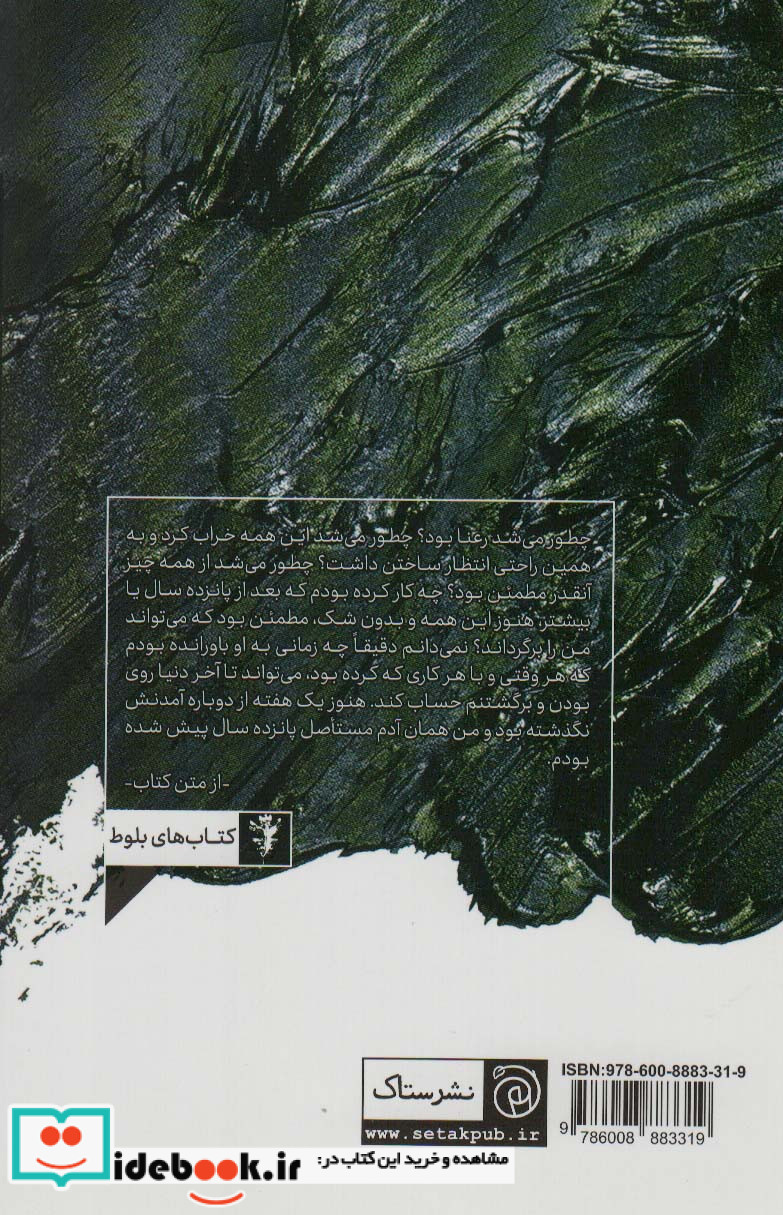 چطور می‌شد رعنا بود؟ چطور می‌شد این همه خراب کرد و به
همین راحتی انتظار ساختن داشت؟ چطور می‌شد از همه چیز
آنقدر مطمئن بود؟ چه کار کرده بودم که بعد از پانزده سال یا
بیشتر، هنوز این همه و بدون شک، مطمئن بود که می‌تواند
من را برگرداند؟ نمی‌دانم دقیقاً چه زمانی به او باورانده بودم
که هر وقتی و با هر کاری که کرده بود، می‌تواند تا آخر دنیا روی
بودن و برگشتنم حساب کند. هنوز یک هفته از دوباره آمدنش
نگذشته بود و من همان آدم مستأصل پانزده سال پیش شده
بودم.
-از متن کتاب-
کتاب‌های بلوط
نشر ستاک
www.setakpub.ir
ISBN:978-600-8883-31-9
9 786008 883319
مشاهده و خرید این کتاب در:
idebook.ir